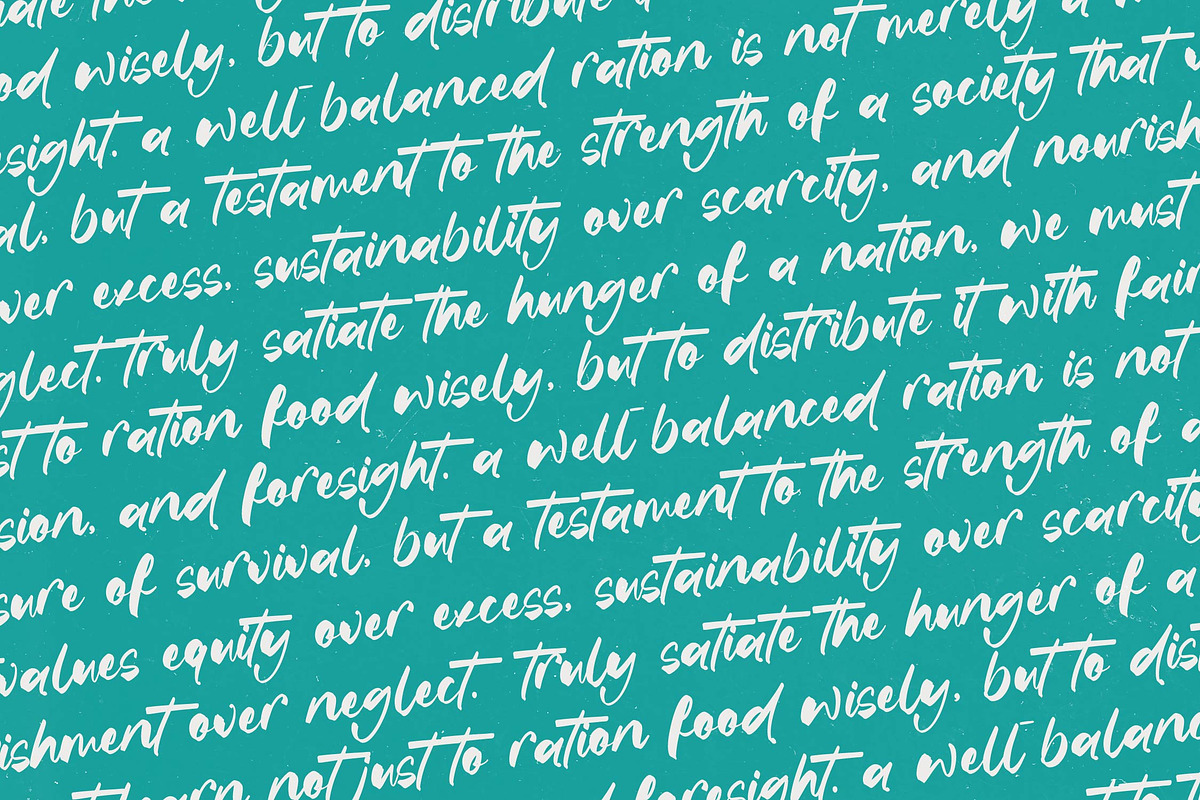 the
od wisely, but to distribute it
esight. a well-balanced ration is not merely a
al, but a testament to the strength of a society that
ver excess, sustainability over scarcity, and nourish
glect. Truly satiate the hunger of a nation, we must
st to ration food wisely, but to distribute it with fair
sion, and foresight. a well-balanced ration is not
sure of survival, but a testament to the strength of a
values equity over excess, sustainability over scarcity
ishment over neglect. Truly satiate the hunger of a
learn not just to ration food wisely, but to dis
foresight. a well-balanc